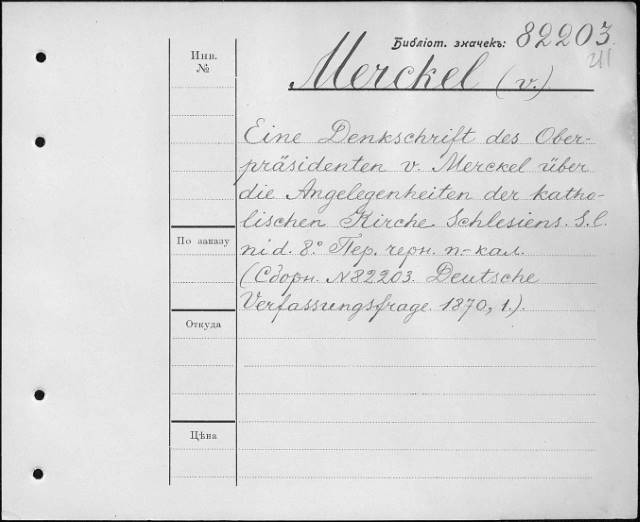 Библіот. значекъ: 82203
Merckel (v.)
Инв.
№
Eine Denkschrift des Ober-
präsidenten v. Merckel über
die Angelegenheiten der katho-
lischen Kirche Schlesiens. S. l.
ni d. 8.° Пер. черн. п-кал.
(Сборн. N 82203. Deutsche
Verfassungsfrage. 1870, 1.).
По заказу
Откуда
Цѣна